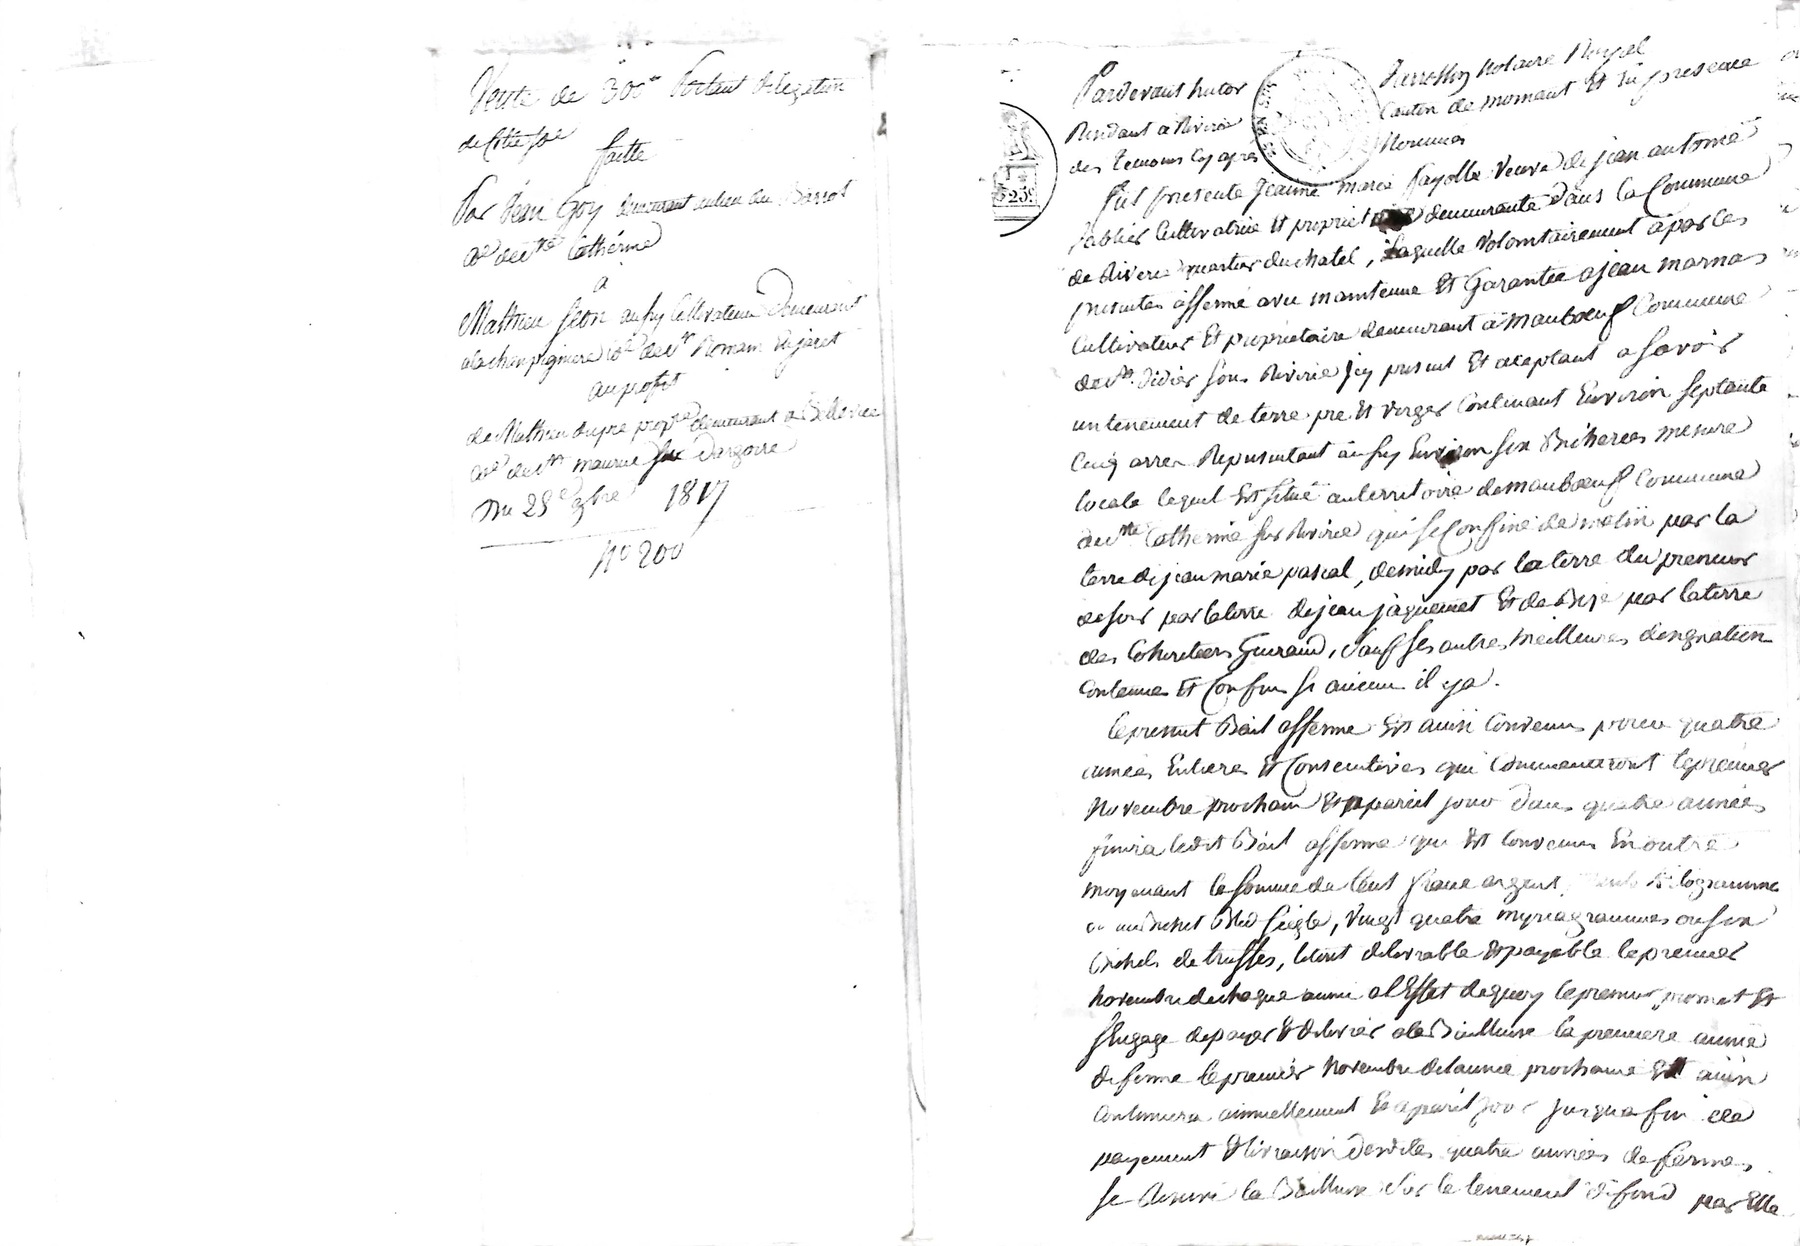 Vente de 300 tt portant délégation
de cette Sme
faitte
Par Jean Goy demeurant au lieu du Barrot
Cne de Ste Cathérine
a
Mathieu Séon aussy Cultivateur Demeurant
a la champignière Cne de St Romain En jarèt
au profit
de Mathieu dupré propre demeurant a Bellevue
Cne de St maurice sur Dargoire
Du 28e 9bre 1817
No 200
Pardevant Antoe Pierre Goy notaire Royal
Residant a Riverie Canton de mornant Et En presence
des Temoins Cy après Nommés
fut presente Jeanne Marie fayolle Veuve de jean antoine
Cultivatrice Et proprietaire demeurante dans la Commune
de Riverie quartier du chatel, Laquelle volontairement a par Ces
presentes affermé avec maintenue Et Garantie a jean marnas
Cultivateur Et propriétaire demeurant à Mauboeuf Commune
de St Didier sous Riverie Icy present Et aceptant a savoir
un tenement de terre pré Et verger Contenant Environ septante
Cinq arres Representant aussy Environ six Bicherées mesure
locale lequel Est situé au territoire de mauboeuf Commune
de Ste Catherine sur Riverie qui se Confine de matin par la
terre de jean marie pascal, de midy par la terre du preneur
de soir par la terre de jean jaquemet Et de Bize par la terre
des Cohéritiers Guiraud, sauf ses autres meilleures designation
Contenue Et Confins si aucun il y a.
le present Bail afferme Est ainsi Convenu pour quatre
années Entieres Et Consecutives qui Commenceront le premier
Novembre prochain Et a pareil jour dans quatre années
finira ledit Bail afferme qui Est Convenu En outre
moyenant la somme de Cent franc argent, Kilogramme
ou un Bichet Bled seigle, vingt quatre myriagrammes ou six
Bichets de truffes, le tout delivrable Et payable le premier
Novembre de chaque année a l'Effet de quoy le preneur promet Et
s'Engage de payer Et délivrer a la Bailleuse la premiere année
de ferme le premier Novembre de l'année prochaine Et ainsi
Continuera annuellement Et a pareil jour jusqua fin de
payement Et livraison desdites quatre années de fermes.
se Réserve la Bailleuse sur le tenement de fond par Elle